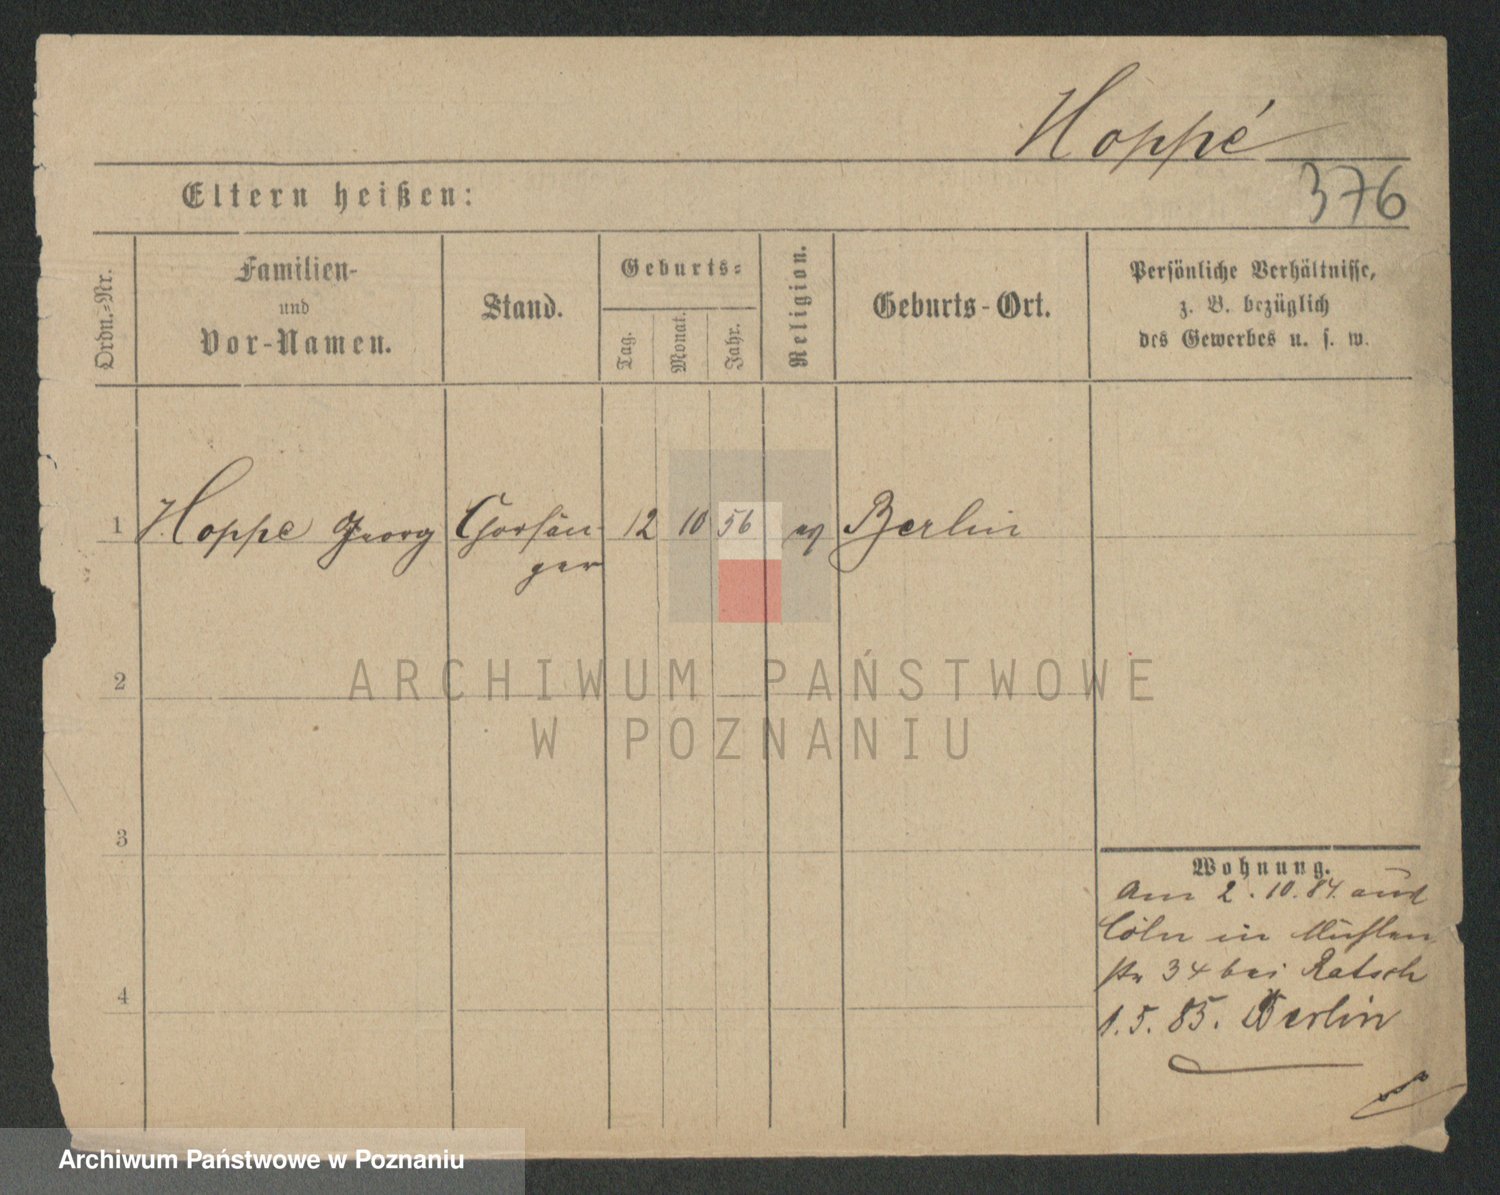 Hoppé
376
Eltern heißen:
Ordn.-Nr.
Familien-
und
Vor-Namen.
Stand.
Geburts-
Tag.
Monat.
Jahr.
Religion.
Geburts-Ort.
Persönliche Verhältnisse,
z. B. bezüglich
des Gewerbes u. s. w.
1 Hoppe Georg Chorsän- 12 10 56 ev Berlin
ger
2
ARCHIWUM PAŃSTWOWE
W POZNANIU
3
4
Wohnung.
Am 2. 10. 84. aus
Cöln in Mühlen
str 34 bei Ratsch
1. 5. 85. Berlin
Archiwum Państwowe w Poznaniu